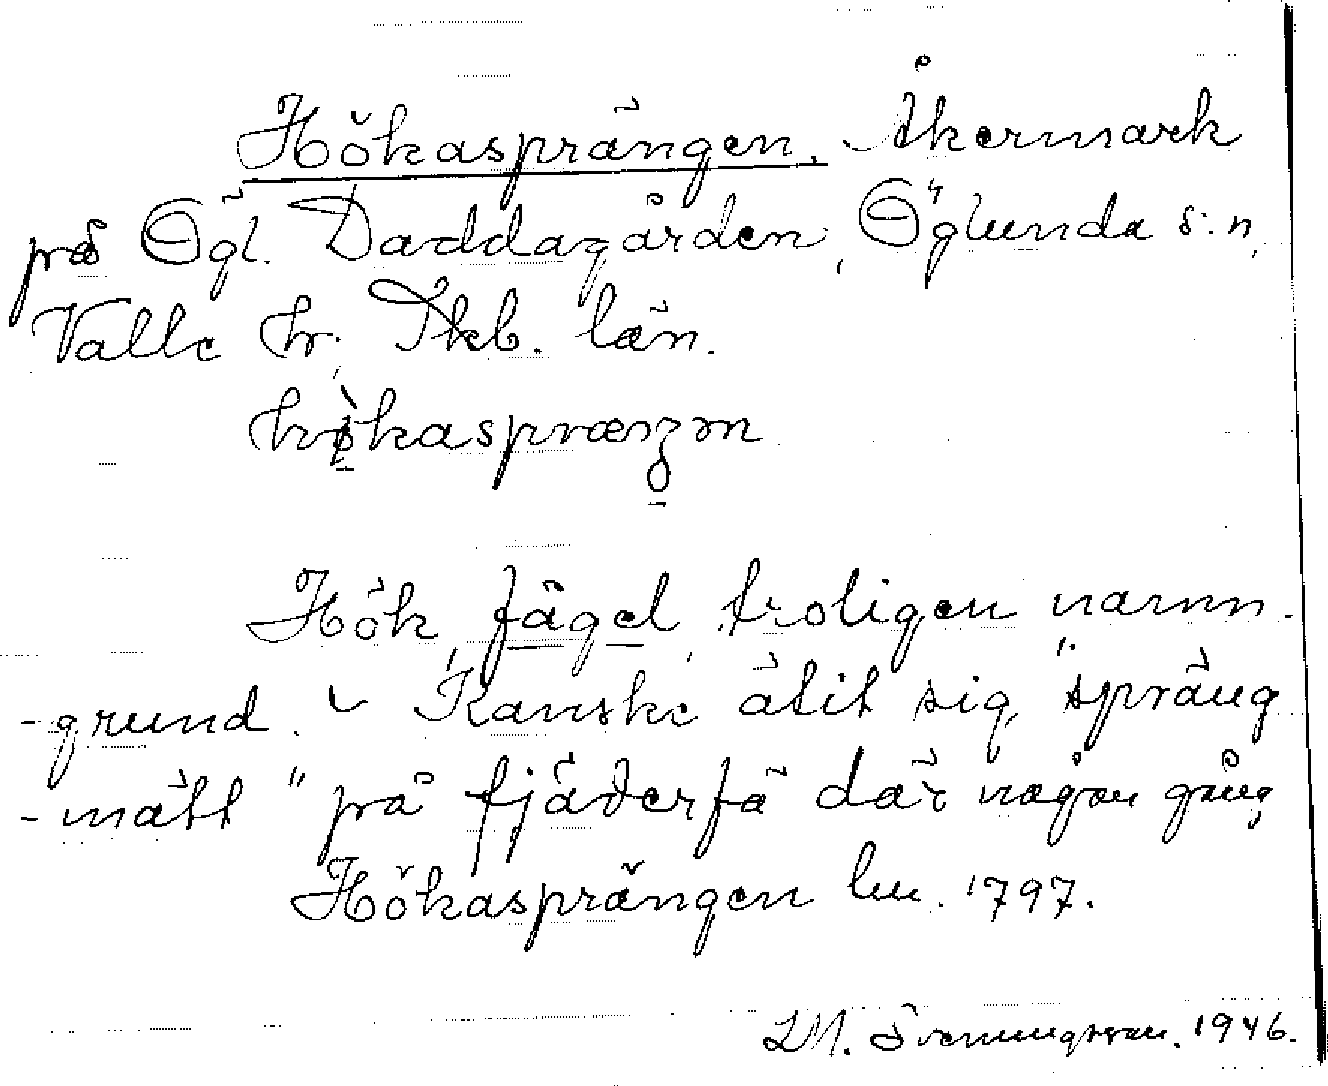 Hökasprängen. Åkermark
på Ögl. Daddagården, Öglunda s:n,
Valle hr. Skb. län.
hökaspræŋən
Hök, fågel, troligen namn-
-grund. Kanske ätit sig "spräng
-mätt" på fjäderfä där någon gång
Hökasprängen lm. 1797.
L.M. Svenungsson. 1946.